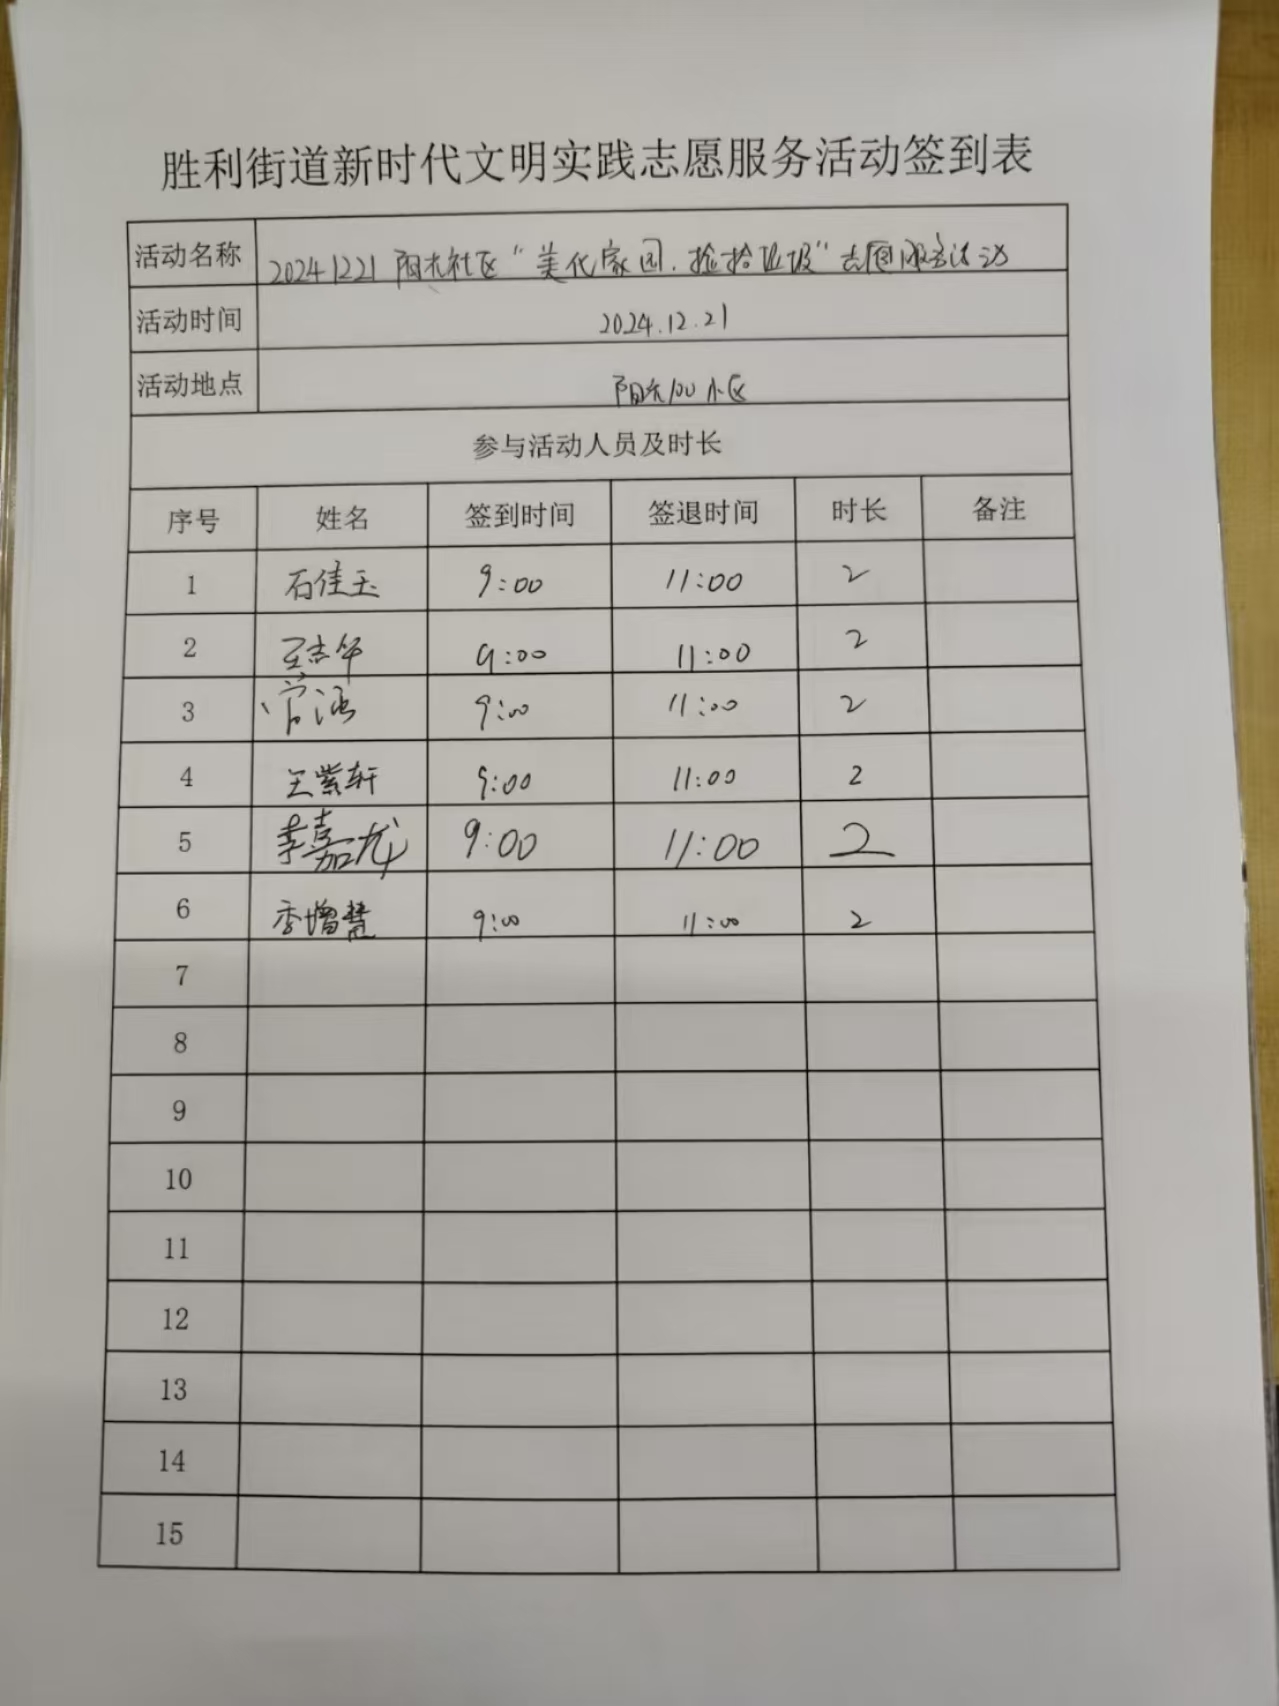 胜利街道新时代文明实践志愿服务活动签到表
活动名称 20241221 阳光社区“美化家园.捡拾垃圾”志愿服务活动
活动时间 2024.12.21
活动地点 阳光100小区
参与活动人员及时长
序号 姓名 签到时间 签退时间 时长 备注
1 石佳玉 9:00 11:00 2
2 王志华 9:00 11:00 2
3 9:00 11:00 2
4 王紫轩 9:00 11:00 2
5 李嘉龙 9:00 11:00 2
6 季增慧 9:00 11:00 2
7
8
9
10
11
12
13
14
15